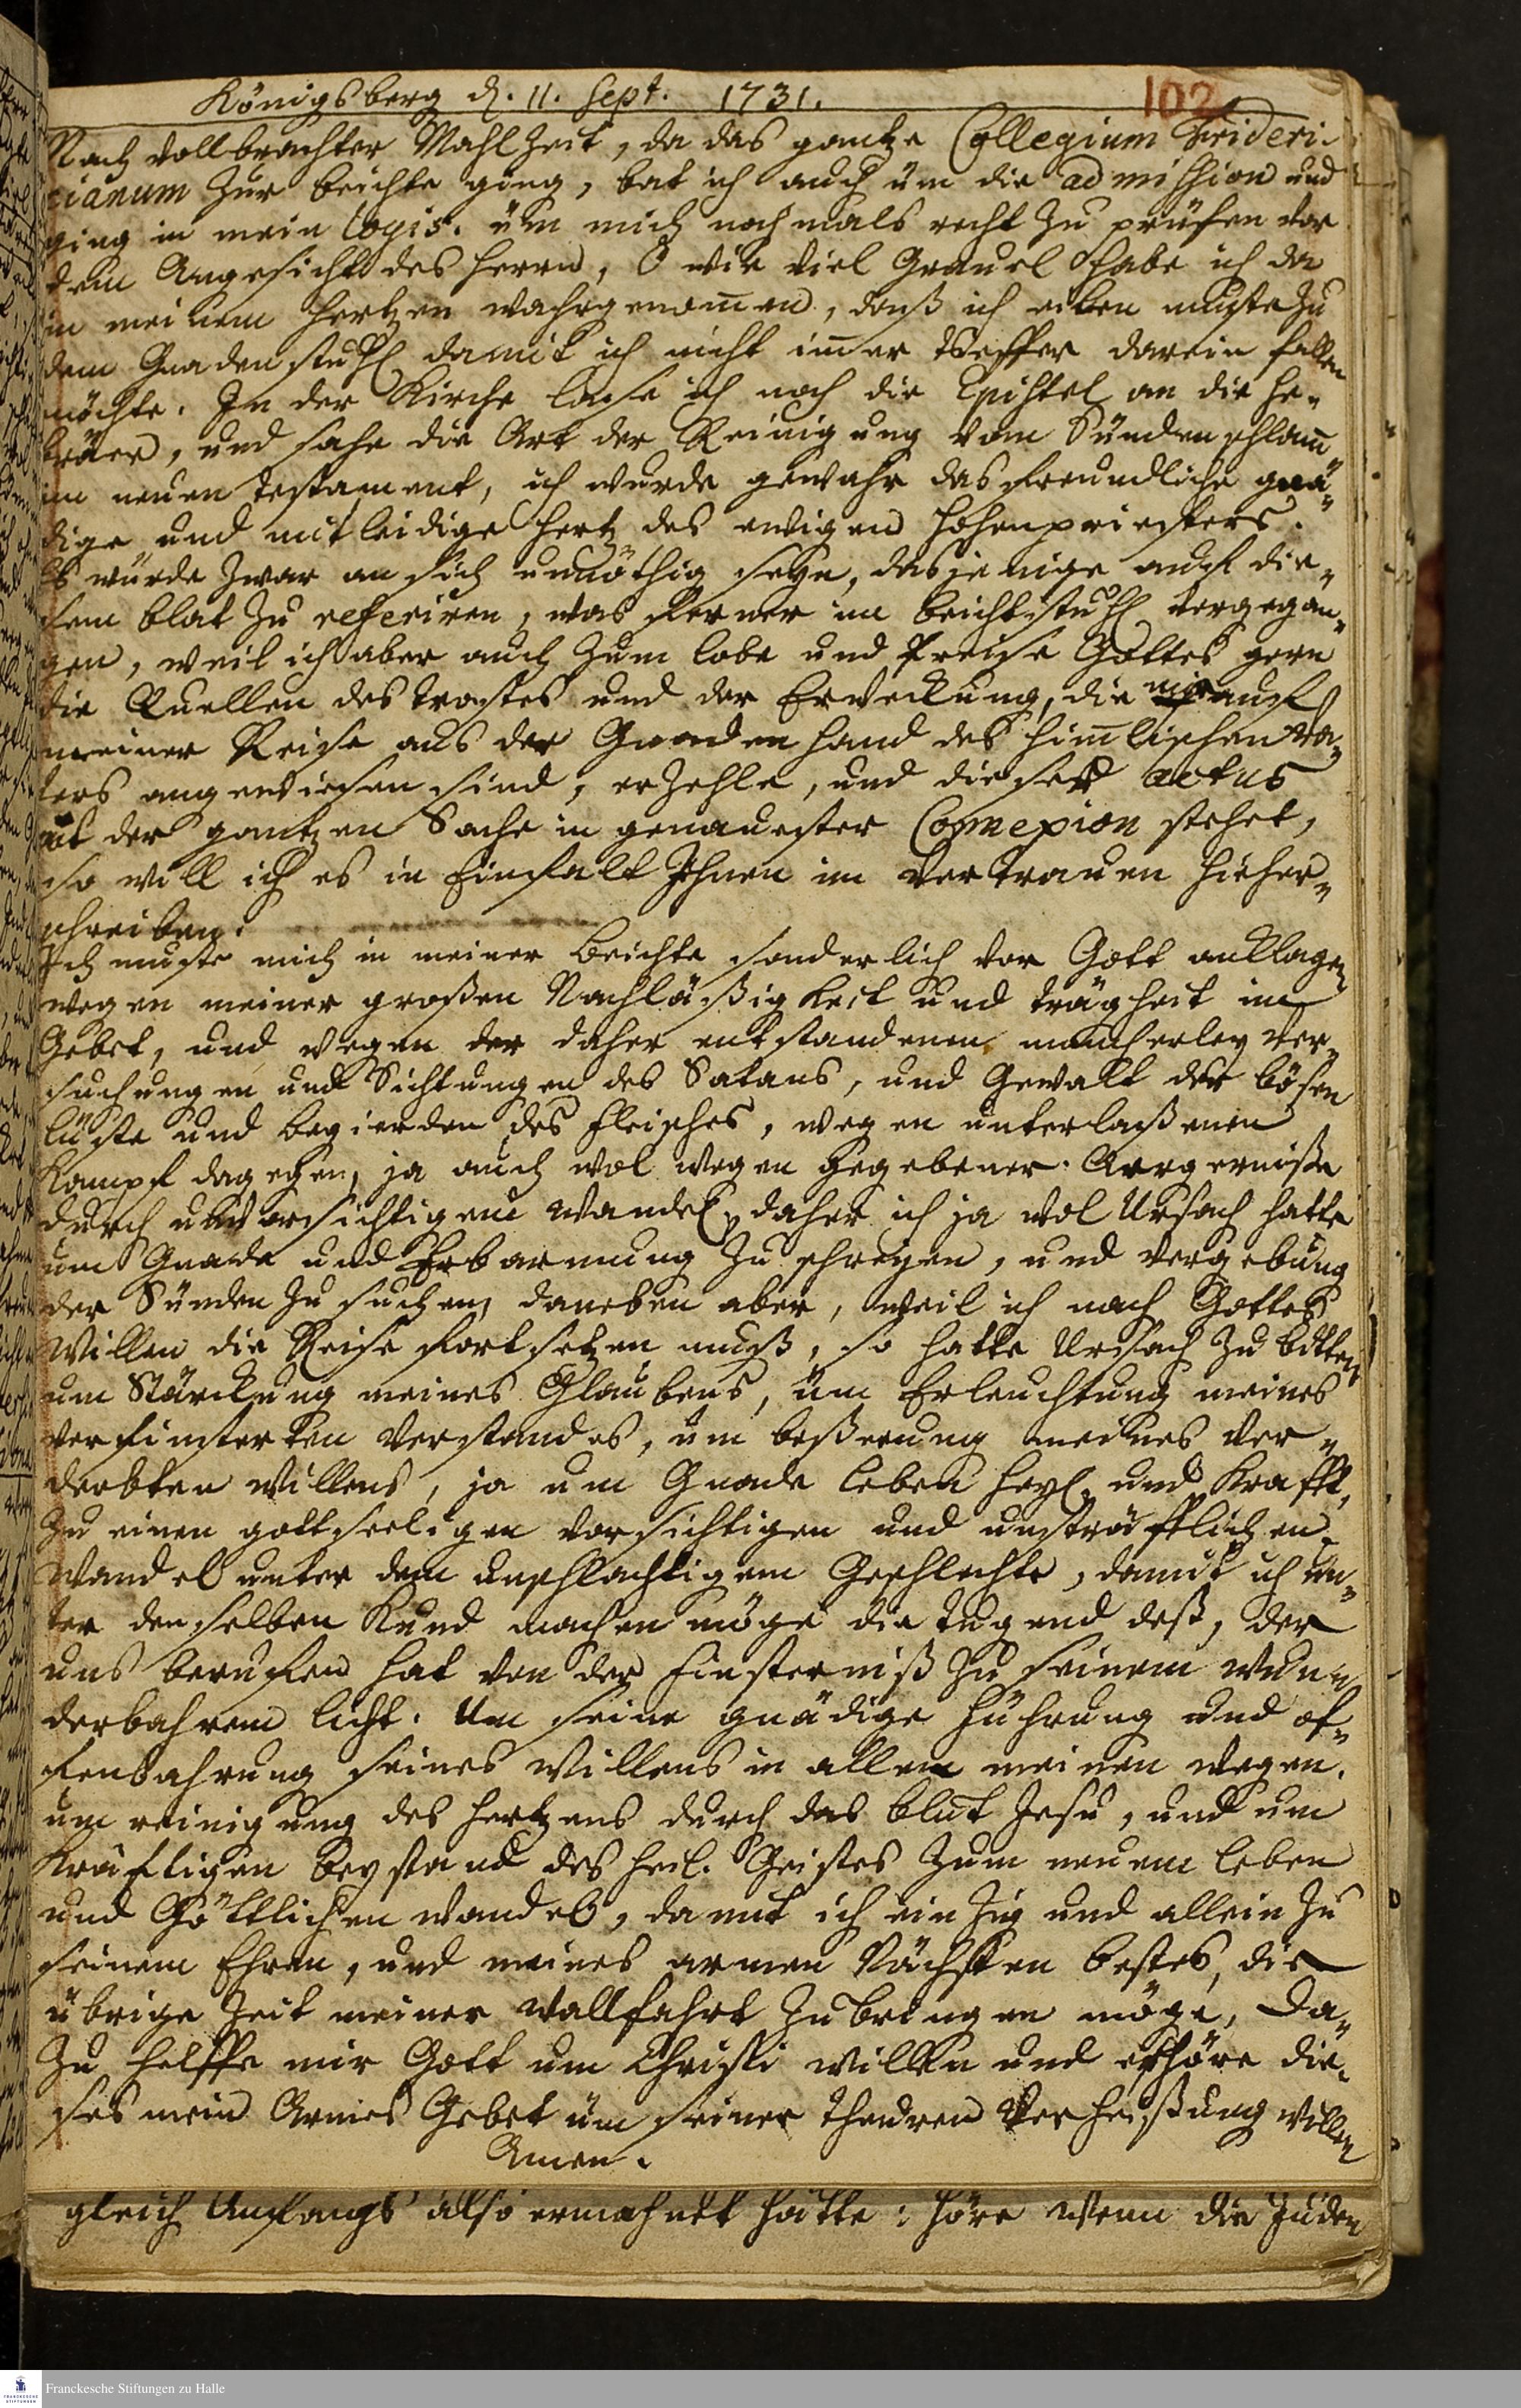 Königsberg d. 11. Sept. 1731.
102
Nach vollbrachter Mahlzeit, da das gantze Collegium Frideri-
cianum zur beichte ging, bat ich auch üm die admission und
ging in mein logis. üm mich nochmals recht zu prüfen vor
dem Angesicht des Herrn, O wie viel Greuel habe ich da
in meinem Hertzen wahrgenom̅en, daß ich eilen muste zu
dem Gnadenstuhl damit ich nicht im̅er tieffer darein fallen
möchte. In der Kirche lase ich noch die Epistel an die He-
bräer, und sahe die Art der Reinigung vom Sündenschlam̅
im neuen testament, ich wurde gewahr das freundliche gnä-
dige und mitleidige Hertz des ewigen Hohenpriesters.
Es würde zwar an sich unnöthig seyn, dasjenige auf die-
sem blat zu referiren, was ferner im beichtstuhl vergegan-
gen, weil ich aber auch zum lobe und Preise Gottes gern
die Quellen des trostes und der Erweckung, die mir auf
meiner Reise aus der Gnadenhand des him̅lischen Va-
ters angewiesen sind, erzehle, und dieser actus
mit der gantzen Sache in genauester Connexion stehet,
so will ich es in Einfalt Ihnen im Vertrauen hieher-
schreiben.
Ich muste mich in meiner beichte sonderlich vor Gott anklagen
wegen meiner großen Nachläßigkeit und trägheit im
Gebet, und wegen der daher entstandenen mancherley Ver-
suchungen und Sichtungen des Satans, und Gewalt der bösen
lüste und begierden des fleisches, wegen unterlaßenen
Kampf dagegen, ja auch wol wegen gegebener Aergerniße
durch unvorsichtigem wandel, daher ich ja wol Ursach hatte
um Gnade und Erbarmung zu schreyen, und Vergebung
der Sünden zu suchen, daneben aber, weil ich nach Gottes
Willen die Reise fortsetzen muß, so hatte Ursach zu bitten
um Stärckung meines Glaubens, üm Erleuchtung meines
verfinsterten Verstandes, üm beßerung meines ver-
derbten willens, ja um Gnade leben heyl. und Krafft,
zu einen gottseeligen vorsichtigen und unsträfflichen
Wandel unter dem unschlachtigem Geschlechte, damit ich un-
ter denselben Kund machen möge die tugend deß, der
uns beruffen hat von der Finsterniß zu seinem wun-
derbahrem licht. Um seine gnädige führung und of-
fenbahrung seines Willens in allen meinen wegen.
um reinigung des Hertzens durch das blut Jesu, und um
kräftigen beystand des heil. Geistes zum neuem leben
und Göttlichen wandel, damit ich einzig und allein zu
seinem Ehren, und meines armen Nächsten bestes, die
übrige Zeit meiner wallfahrt zubringen möge, Da-
zu helffe mir Gott um Christi willen und erhöre die-
ses mein Armes Gebet üm seiner theuren Verheißung willen
Amen.
gleich Anfangs also ermahnet hatte: höre wenn die Juden
Franckesche Stiftungen zu Halle